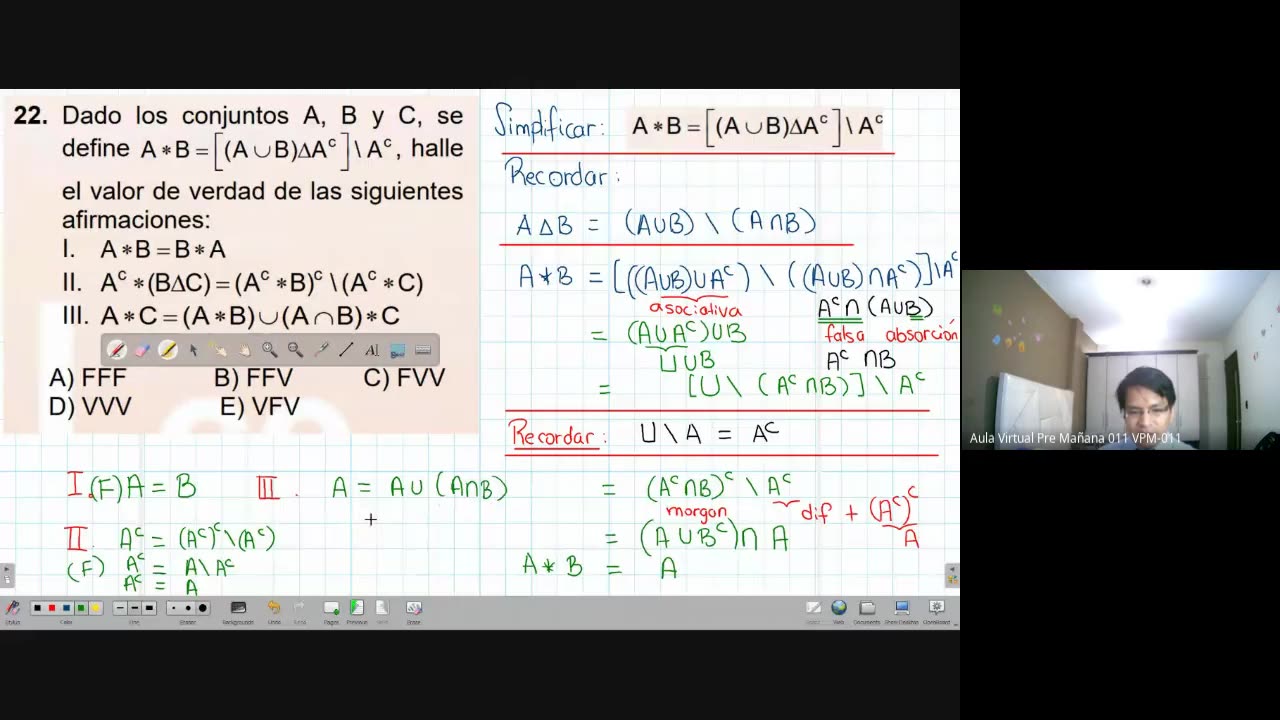 22. Dado los conjuntos A, B y C, se
define A∗B=[(A∪B)ΔAᶜ]\Aᶜ, halle
el valor de verdad de las siguientes
afirmaciones:
I. A∗B=B∗A
II. Aᶜ∗(BΔC)=(Aᶜ∗B)ᶜ\(Aᶜ∗C)
III. A∗C=(A∗B)∪(A∩B)∗C
A) FFF B) FFV C) FVV
D) VVV E) VFV
Simplificar: A∗B=[(A∪B)ΔAᶜ]\Aᶜ
Recordar:
A Δ B = (A∪B) \ (A∩B)
A∗B = [((A∪B)∪Aᶜ) \ ((A∪B)∩Aᶜ)]\Aᶜ
asociativa Aᶜ∩(A∪B)
= (A∪Aᶜ)∪B falsa absorción
U∪B Aᶜ∩B
= [U \ (Aᶜ∩B)] \ Aᶜ
Recordar: U\A = Aᶜ
= (Aᶜ∩B)ᶜ \ Aᶜ
morgan dif + (Aᶜ)ᶜ
= (A∪Bᶜ)∩A A
A∗B = A
I. (F) A = B III. A = A∪(A∩B)
II. Aᶜ = (Aᶜ)ᶜ\(Aᶜ)
(F) Aᶜ = A\Aᶜ
Aᶜ = A
Aula Virtual Pre Mañana 011 VPM-011